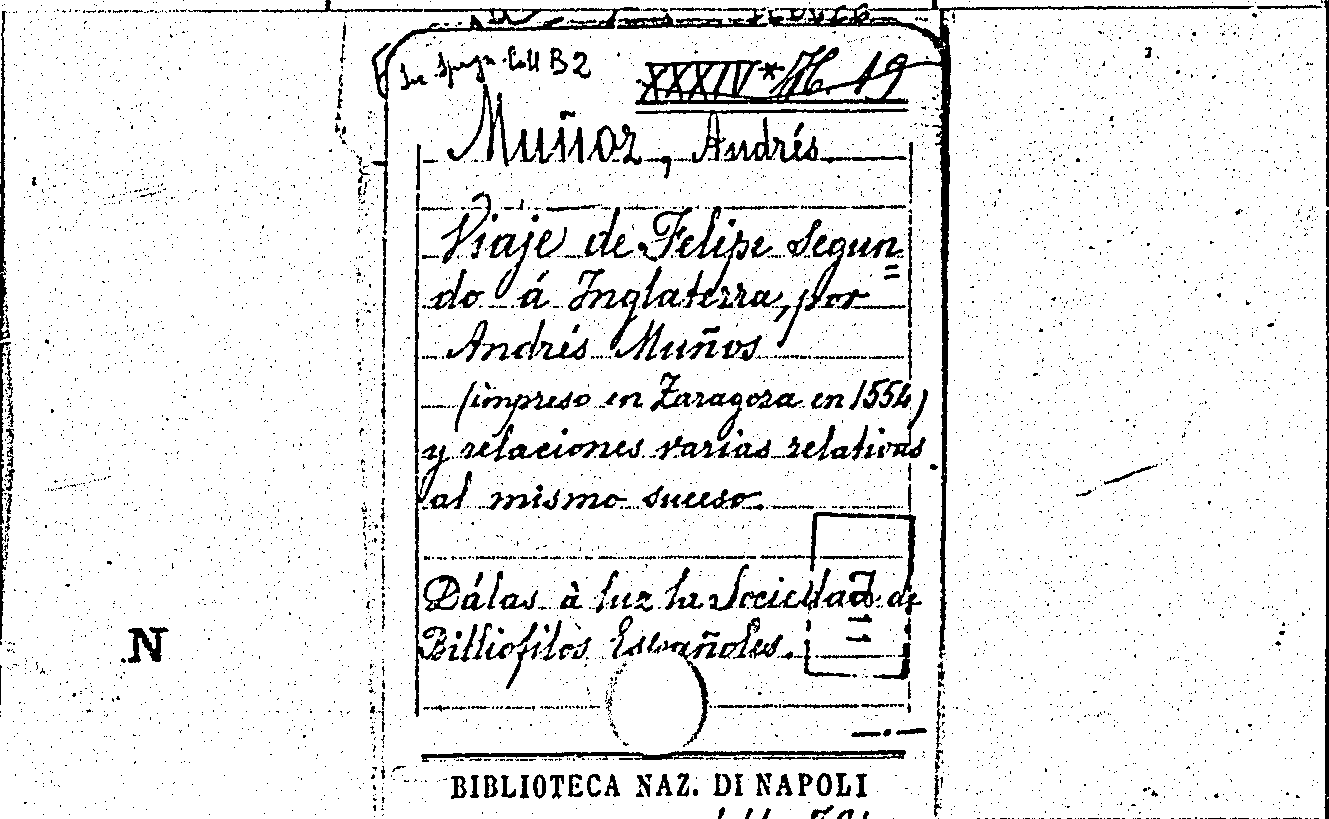 Spagn. Coll B2
XXXIV * H 19
Muñoz, Andrés.
Viaje de Felipe Segun=
do á Inglaterra, por
Andrés Muños
(impreso en Zaragoza en 1554)
y relaciones varias relativas
al mismo suceso.
Dálas à luz la Sociedad de
Billiofilos Españoles.
N
BIBLIOTECA NAZ. DI NAPOLI